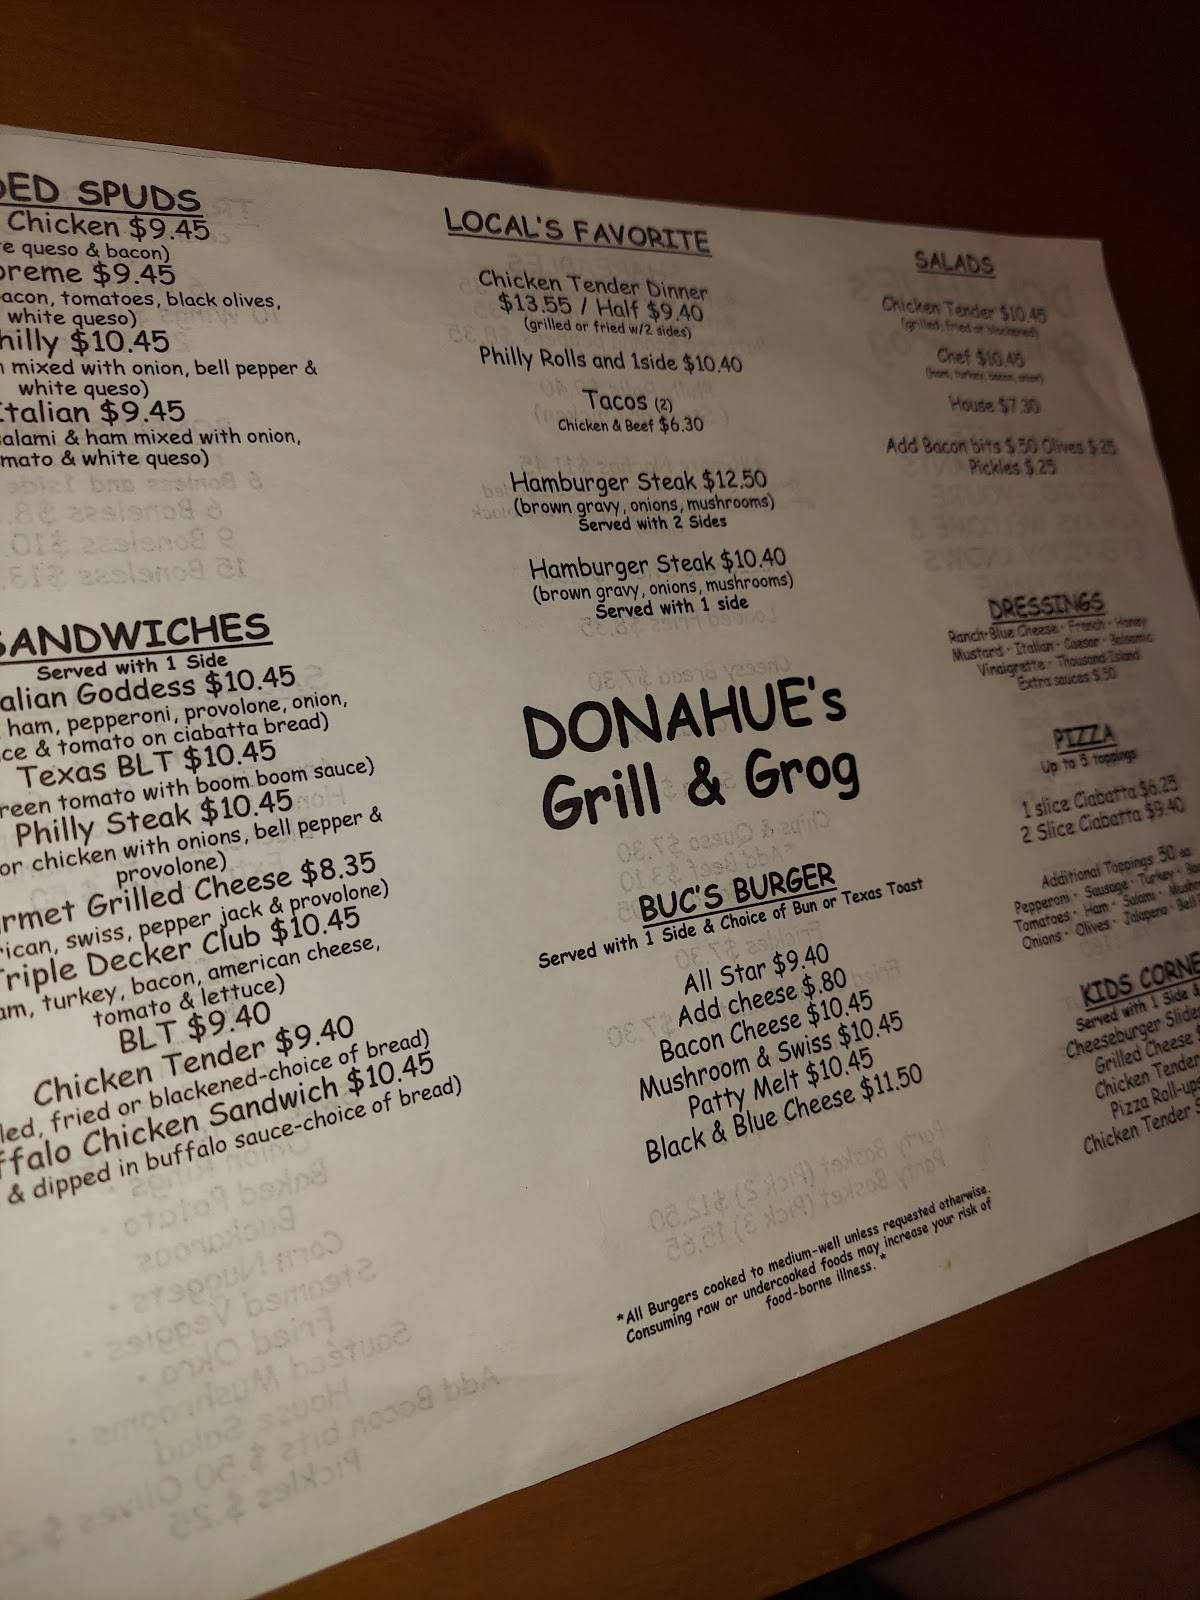 DED SPUDS
Chicken $9.45
e queso & bacon)
preme $9.45
acon, tomatoes, black olives,
white queso)
hilly $10.45
mixed with onion, bell pepper &
white queso)
Italian $9.45
alami & ham mixed with onion,
mato & white queso)
SANDWICHES
Served with 1 Side
alian Goddess $10.45
ham, pepperoni, provolone, onion,
ce & tomato on ciabatta bread)
Texas BLT $10.45
reen tomato with boom boom sauce)
Philly Steak $10.45
or chicken with onions, bell pepper &
provolone)
urmet Grilled Cheese $8.35
rican, swiss, pepper jack & provolone)
Triple Decker Club $10.45
am, turkey, bacon, american cheese,
tomato & lettuce)
BLT $9.40
Chicken Tender $9.40
lled, fried or blackened-choice of bread)
ffalo Chicken Sandwich $10.45
& dipped in buffalo sauce-choice of bread)
LOCAL'S FAVORITE
Chicken Tender Dinner
$13.55 / Half $9.40
(grilled or fried w/2 sides)
Philly Rolls and 1side $10.40
Tacos (2)
Chicken & Beef $6.30
Hamburger Steak $12.50
(brown gravy, onions, mushrooms)
Served with 2 Sides
Hamburger Steak $10.40
(brown gravy, onions, mushrooms)
Served with 1 side
DONAHUE's
Grill & Grog
BUC'S BURGER
Served with 1 Side & Choice of Bun or Texas Toast
All Star $9.40
Add cheese $.80
Bacon Cheese $10.45
Mushroom & Swiss $10.45
Patty Melt $10.45
Black & Blue Cheese $11.50
*All Burgers cooked to medium-well unless requested otherwise.
Consuming raw or undercooked foods may increase your risk of
food-borne illness. *
SALADS
Chicken Tender $10.45
(grilled, fried or blackened)
Chef $10.45
(ham, turkey, bacon, onion)
House $7.30
Add Bacon bits $.50 Olives $.25
Pickles $.25
DRESSINGS
Ranch· Blue Cheese · French · Honey
Mustard · Italian · Caesar · Balsamic
Vinaigrette · Thousand Island
Extra sauces $.50
PIZZA
Up to 5 toppings
1 slice Ciabatta $6.25
2 Slice Ciabatta $9.40
Additional Toppings .50 ea
Pepperoni · Sausage · Turkey ·
Tomatoes · Ham · Salami · Mush
Onions · Olives · Jalapeno · Bell
KIDS CORNE
Served with 1 Side &
Cheeseburger Slider
Grilled Cheese
Chicken Tender
Pizza Roll-ups
Chicken Tender